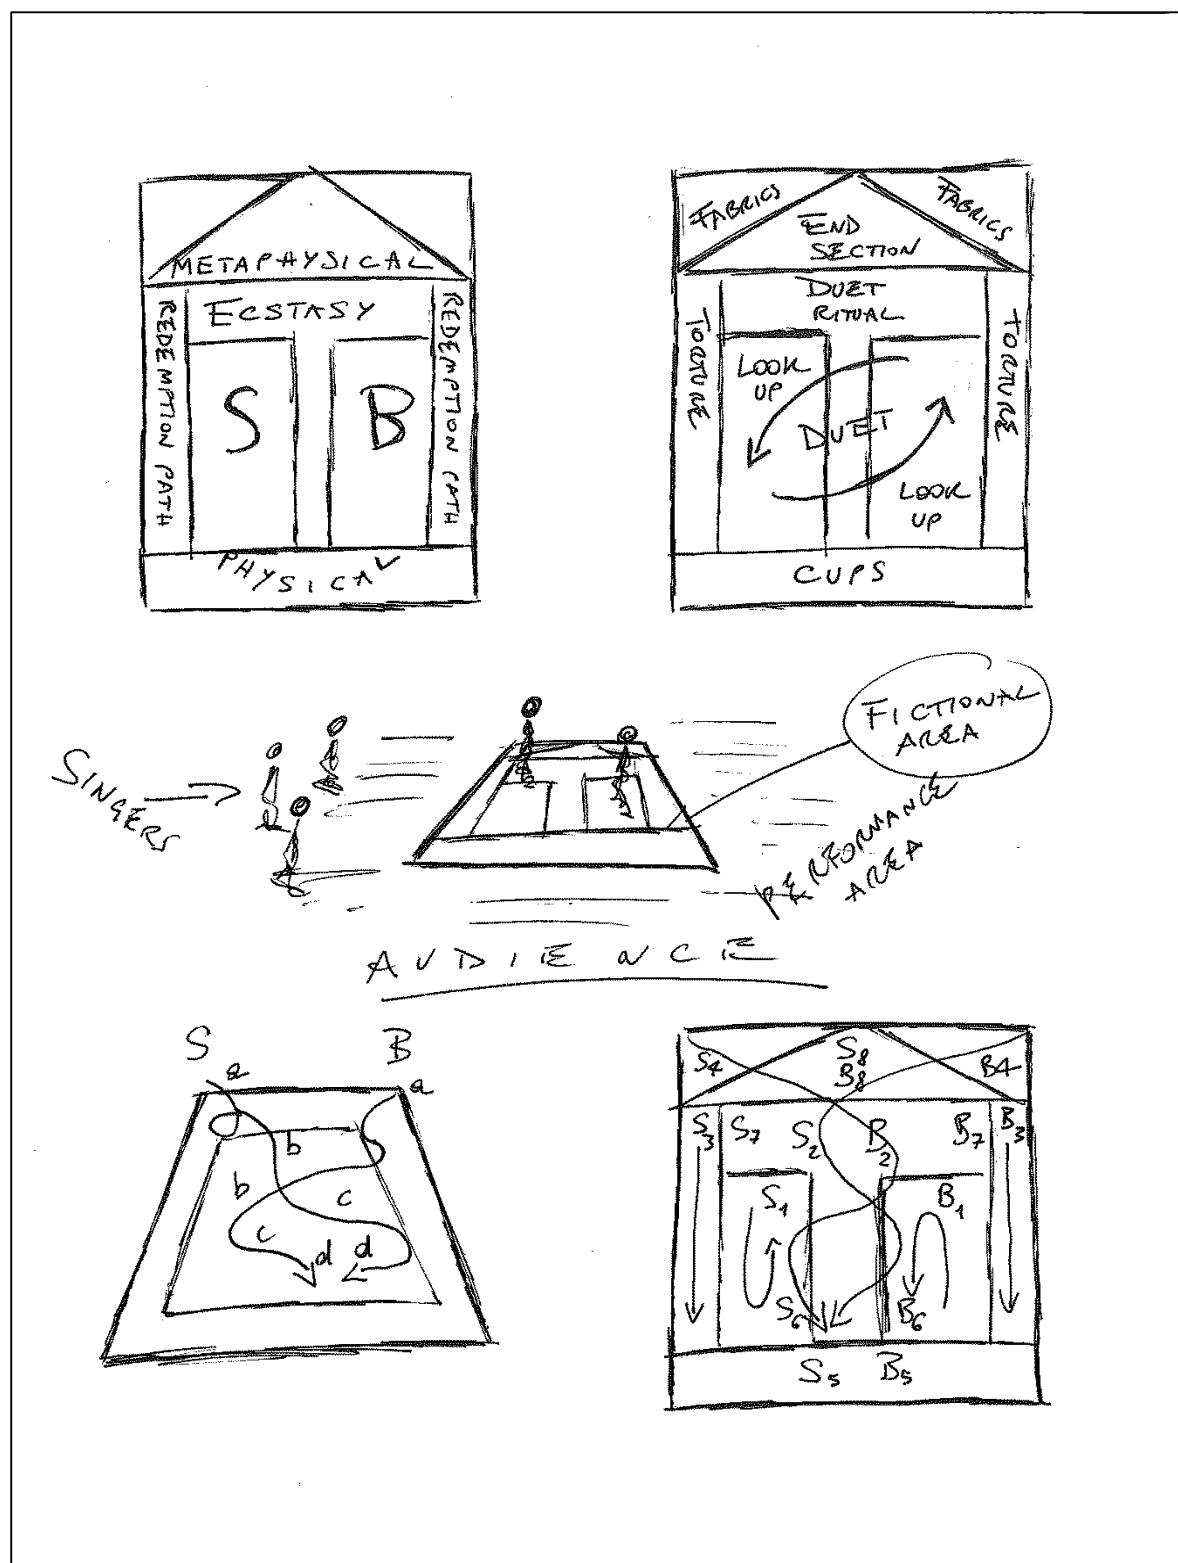 METAPHYSICAL
ECSTASY
REDEMPTION PATH
REDEMPTION PATH
S
B
PHYSICAL
FABRICS
FABRICS
END
SECTION
DUET
RITUAL
TORTURE
TORTURE
LOOK
UP
DUET
LOOK
UP
CUPS
SINGERS
FICTIONAL
AREA
PERFORMANCE
AREA
AUDIENCE
S
B
a
a
b
b
c
c
d
d
S4
S8
B8
B4
S3
S7
S2
B2
B7
B3
S1
B1
S6
B6
S5
B5